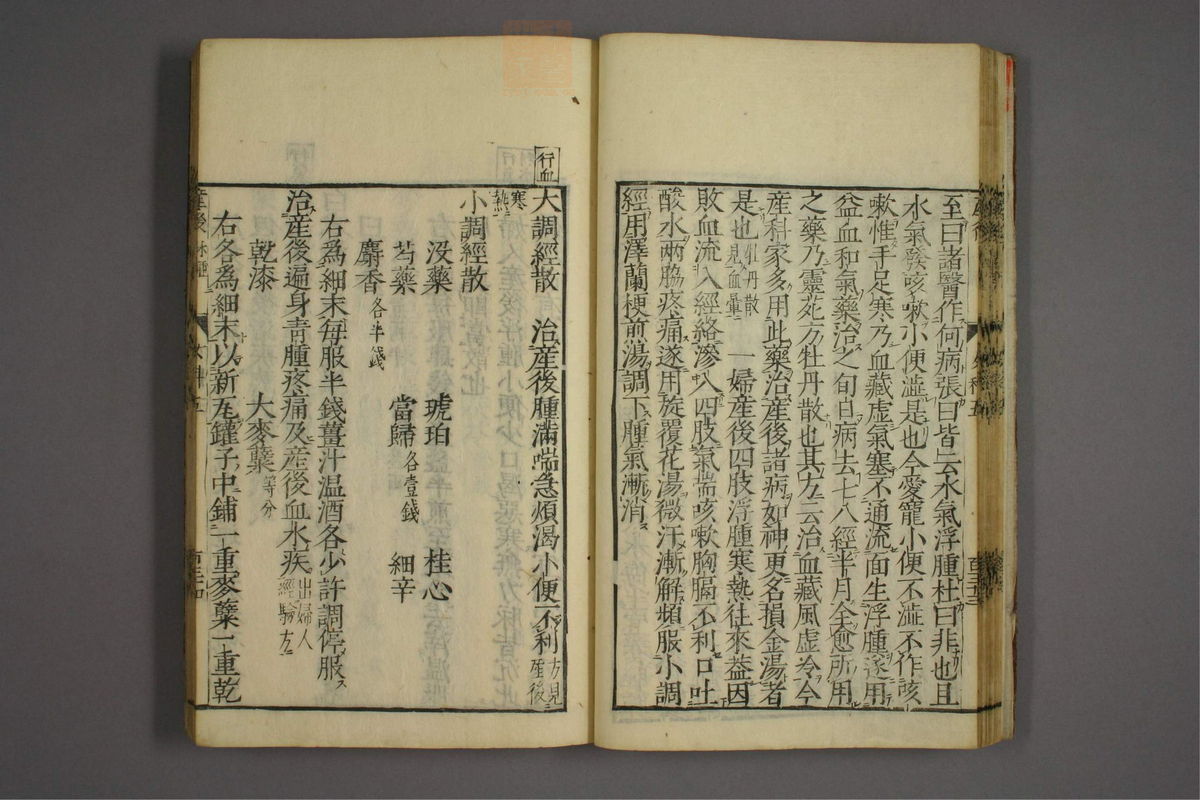 至曰諸醫作何病張曰皆云水氣浮腫杜曰非也且
水氣發咳嗽小便澁是也今愛寵小便不澁不作咳
嗽惟手足寒乃血藏虚氣塞不通流面生浮腫遂用
益血和氣藥治之旬日病去七八經半月全愈所用
之藥乃靈苑方牡丹散也其方云治血藏風虚冷今
産科家多用此藥治産後諸病如神更名損金湯者
是也牡丹散見血暈 一婦産後四肢浮腫寒熱往來蓋因
敗血流入經絡滲入四肢氣喘咳嗽胸膈不利口吐
酸水兩脇疼痛遂用旋覆花湯微汗漸解頻服小調
經用澤蘭梗煎湯調下腫氣漸消
行血
大調經散 治産後腫滿喘急煩渴小便不利方見産後寒熱
小調經散
没藥 琥珀 桂心
芍藥 當歸各壹錢 細辛
麝香各半錢
右爲細末毎服半錢薑汁温酒各少許調停服
治産後遍身青腫疼痛及産後血水疾出婦人經驗方
乾漆 大麥蘗等分
右各爲細末以新瓦罐子中鋪一重麥蘗一重乾
産後
女科五